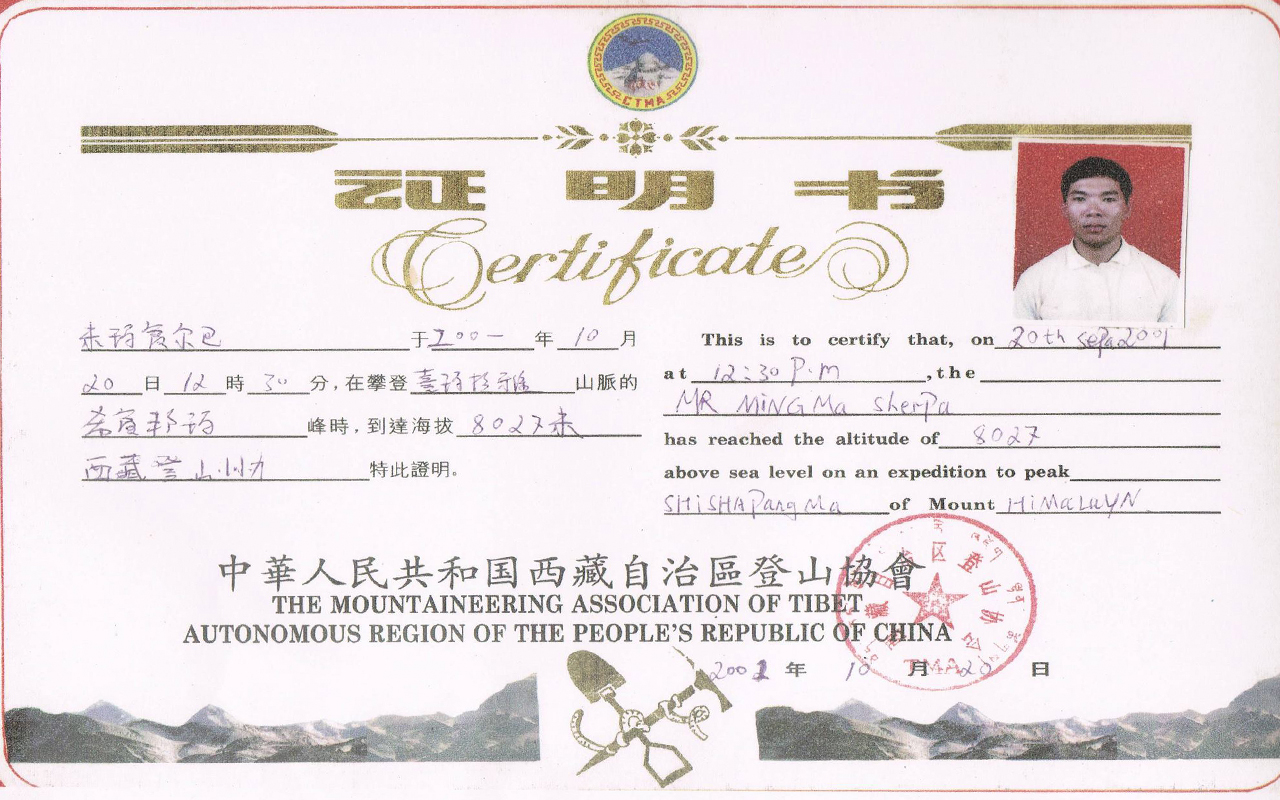 CTMA
证明书
Certificate
米玛夏尔巴 于 2001 年 10 月
20 日 12 時 30 分,在攀登喜玛拉雅 山脉的
希夏邦玛 峰時,到達海拔 8027米
西藏登山 特此證明。
This is to certify that, on 20th sep 2001
at 12:30 P.m ,the
MR MiNGMa Sherpa
has reached the altitude of 8027
above sea level on an expedition to peak
SHiSHAPangMa of Mount HiMaLayN
中華人民共和国西藏自治區登山協會
THE MOUNTAINEERING ASSOCIATION OF TIBET
AUTONOMOUS REGION OF THE PEOPLE'S REPUBLIC OF CHINA
区登山协
TMA
2001 年 10 月 20 日